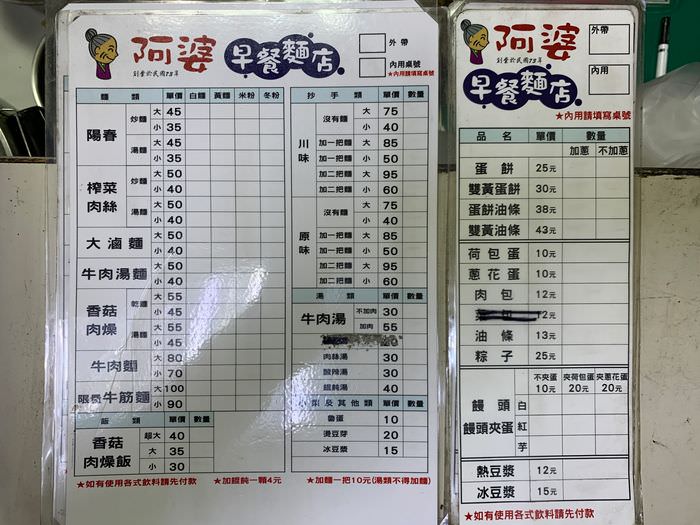 阿婆
創業於民國73年
早餐麵店
外帶
內用桌號
★內用請填寫桌號
麵類 單價 白麵 黃麵 米粉 冬粉
陽春 炒麵 大 45
小 35
湯麵 大 45
小 35
榨菜肉絲 炒麵 大 50
小 40
湯麵 大 50
小 40
大滷麵 大 50
小 40
牛肉湯麵 大 50
小 40
香菇肉燥 乾麵 大 55
小 45
湯麵 大 55
小 45
牛肉麵 大 80
小 70
限量牛筋麵 大 100
小 90
飯類 單價 數量
香菇肉燥飯 超大 40
大 35
小 30
抄手類 單價 數量
川味 沒有麵 大 75
小 40
加一把麵 大 85
小 50
加二把麵 大 95
小 60
原味 沒有麵 大 75
小 40
加一把麵 大 85
小 50
加二把麵 大 95
小 60
湯類 單價 數量
牛肉湯 不加肉 30
加肉 55
肉絲湯 30
酸辣湯 30
餛飩湯 40
小菜及其他類 單價 數量
魯蛋 10
燙豆芽 20
冰豆漿 15
★如有使用各式飲料請先付款 ★加餛飩一顆4元 ★加麵一把10元(湯類不得加麵)
阿婆
創業於民國73年
早餐麵店
外帶
內用
★內用請填寫桌號
品名 單價 數量
加蔥 不加蔥
蛋餅 25元
雙黃蛋餅 30元
蛋餅油條 38元
雙黃油條 43元
荷包蛋 10元
蔥花蛋 10元
肉包 12元
12元
油條 13元
粽子 25元
不夾蛋 夾荷包蛋 夾蔥花蛋
10元 20元 20元
饅頭 白
饅頭夾蛋 紅
芋
熱豆漿 12元
冰豆漿 15元
★如有使用各式飲料請先付款